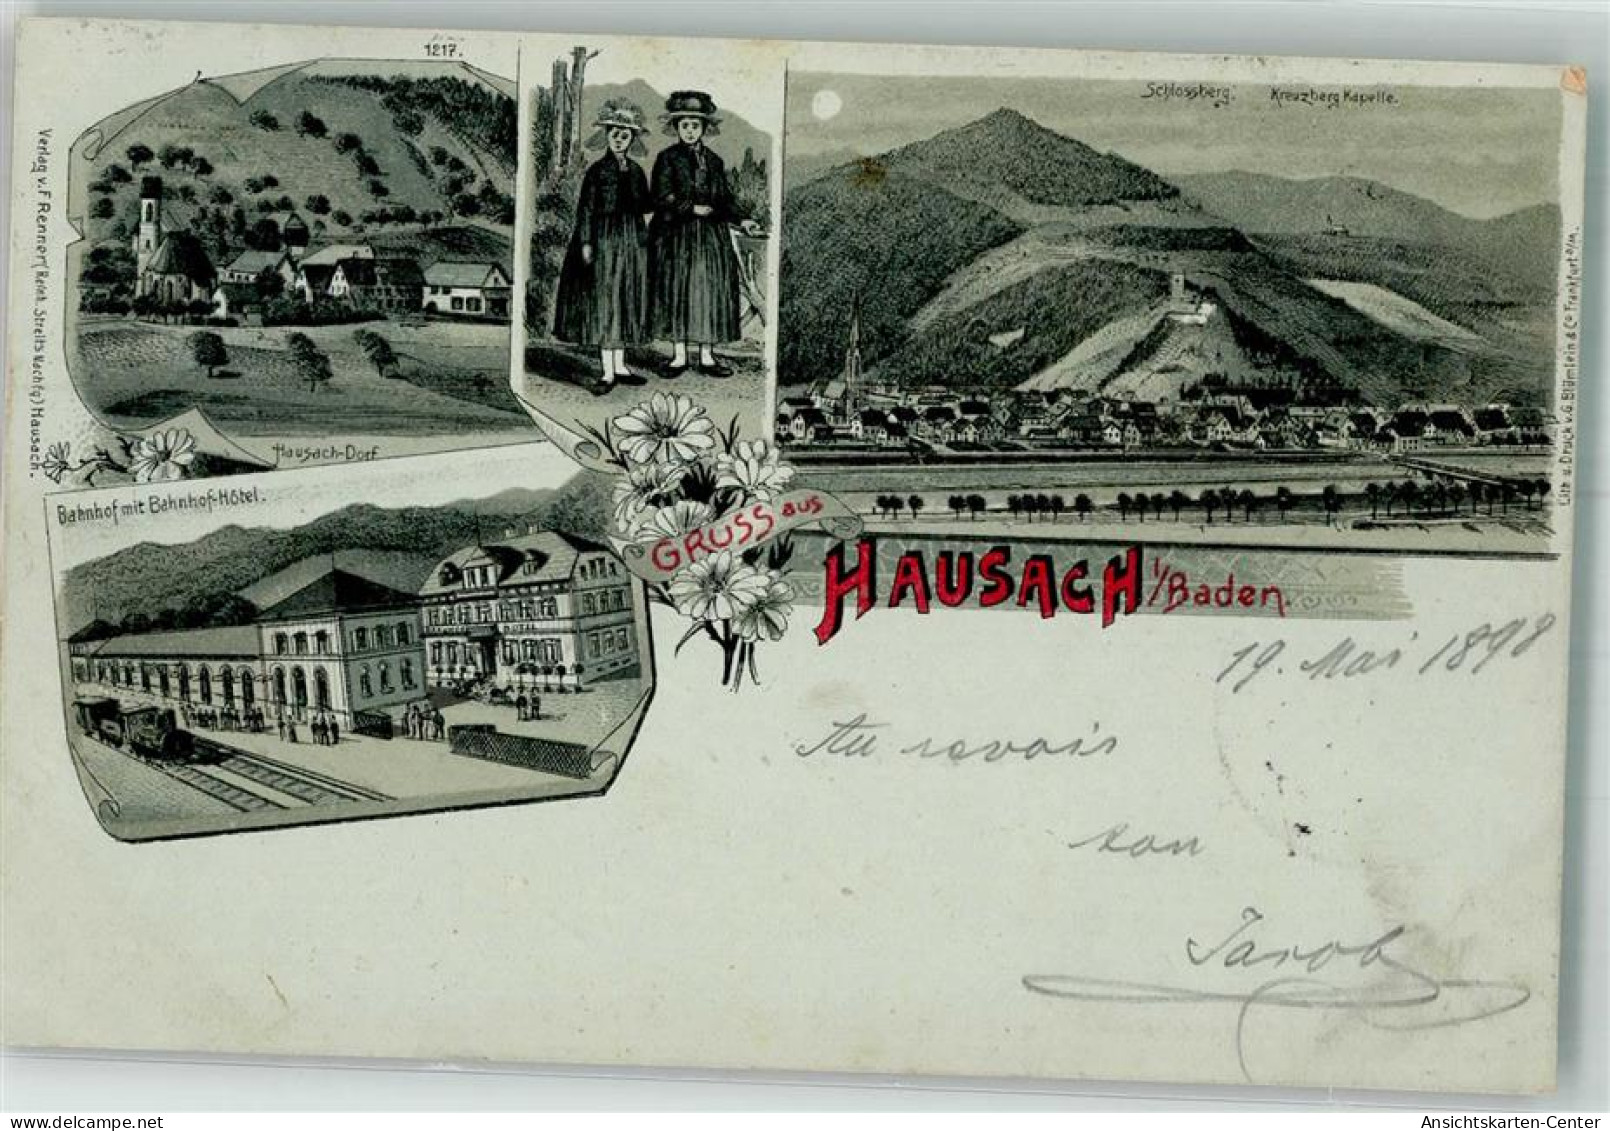 1217.
Verlag v. F Renner (Reinh. Streits Nachfg) Hausach.
Hausach-Dorf
Schlossberg. Kreuzberg Kapelle.
Bahnhof mit Bahnhof-Hôtel.
GRUSS aus
HAUSACH i/Baden.
Lith. u. Druck v. G. Blümlein & Co. Frankfurt a/M.
19. Mai 1898
Au revoir
von
Jacob
Ansichtskarten-Center